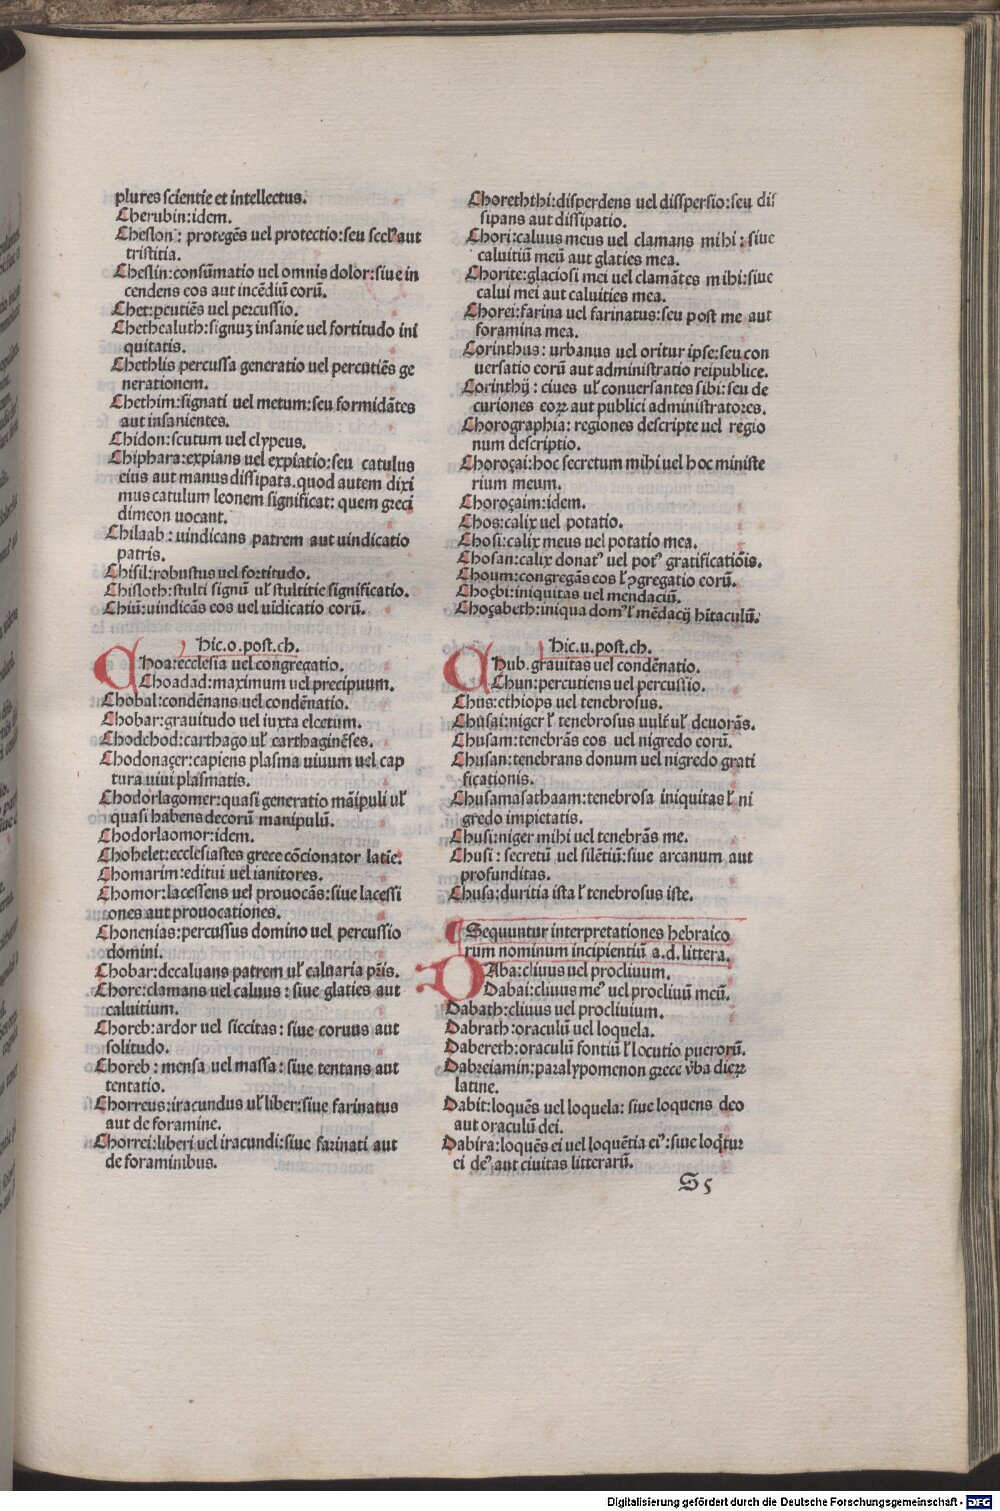 plures scientie et intellectus.
Cherubin:idem.
Cheslon: protegēs uel protectio:seu scelꝰ aut
tristitia.
Cheslin:consūmatio uel omnis dolor:siue in
cendens eos aut incēdiū eorū.
Chet:pcutiēs uel percussio.
Chethcaluth:signuʒ insanie uel fortitudo ini
quitatis.
Chethlis percussa generatio uel percutiēs ge
nerationem.
Chethim:signati uel metum:seu formidātes
aut insanientes.
Chidon:scutum uel clypeus.
Chiphara:expians uel expiatio:seu catulus
eius aut manus dissipata.quod autem dixi
mus catulum leonem significat: quem greci
dimeon uocant.
Chilaab: uindicans patrem aut uindicatio
patris.
Chisil:robustus uel fortitudo.
Chisloth:stulti signū uł stultitie significatio.
Chiū:uindicās eos uel uīdicatio corū.
Hic.o.post.ch.
CHoa:ecclesia uel congregatio.
Choadad:maximum uel precipuum.
Chobal:condēnans uel condēnatio.
Chobar:grauitudo uel iuxta elcetum.
Chodchod:carthago uł carthaginēses.
Chodonaçer:capiens plasma uiuum uel cap
tura uiui plasmatis.
Chodorlagomer:quasi generatio māipuli uł
quasi habens decorū manipulū.
Chodorlaomor:idem.
Chohelet:ecclesiastes grece cōcionator latīe.
Chomarim:editui uel ianitores.
Chomor:lacessens uel prouocās:siue lacessi
tones aut prouocationes.
Chonenias:percussus domino uel percussio
domini.
Chobar:decaluans patrem uł caluaria pr̄is.
Chore:clamans uel caluus: siue glaties aut
caluitium.
Choreb:ardor uel siccitas: siue coruus aut
solitudo.
Choreb: mensa uel massa: siue tentans aut
tentatio.
Chorreus:iracundus uł liber:siue farinatus
aut de foramine.
Chorrei:liberi uel iracundi:siue farinati aut
de foraminibus.
Choreththi:disperdens uel disspersio:seu dis
sipans aut dissipatio.
Chori:caluus meus uel clamans mihi: siue
caluitiū meū aut glaties mea.
Chorite:glaciosi mei uel clamātes mihi:siue
calui mei aut caluities mea.
Chorei:farina uel farinatus:seu post me aut
foramina mea.
Corinthus: urbanus uel oritur ipse:seu con
uersatio corū aut administratio reipublice.
Corinthij: ciues uł conuersantes sibi:seu de
curiones eoꝝ aut publici administratores.
Chorographia: regiones descripte uel regio
num descriptio.
Choroçai:hoc secretum mihi uel hoc ministe
rium meum.
Choroçaim:idem.
Chos:calix uel potatio.
Chosi:calix meus uel potatio mea.
Chosan:calix donatꝰ uel potꝰ gratificatiōis.
Choum:congregās eos ł ꝯgregatio corū.
Choçbi:iniquitas uel mendaciū.
Choçabeth:iniqua domꝰ ł mēdacij hītaculū.
Hic.u.post.ch.
CHub.grauitas uel condēnatio.
Chun:percutiens uel percussio.
Chus:ethiops uel tenebrosus.
Chusai:niger ł tenebrosus uult uł deuorās.
Chusam:tenebrās eos uel nigredo corū.
Chusan:tenebrans donum uel nigredo grati
ficationis.
Chusamasathaam:tenebrosa iniquitas ł ni
gredo impietatis.
Chusi:niger mihi uel tenebrās me.
Chusi: secretū uel silētiū:siue arcanum aut
profunditas.
Chusa:duritia ista ł tenebrosus iste.
Sequuntur interpretationes hebraico
rum nominum incipientiū a.d.littera.
DAba:cliuus uel procliuum.
Dabai:cliuus meꝰ uel procliuū meū.
Dabath:cliuus uel procliuium.
Dabrath:oraculū uel loquela.
Dabereth:oraculū fontiū ł locutio puerorū.
Dabreiamin:paralypomenon grece v̄ba dieꝝ
latine.
Dabit:loquēs uel loquela: siue loquens deo
aut oraculū dei.
Dabira:loquēs ei uel loquētia eiꝰ:siue loq̄tur
ei deꝰ aut ciuitas litterarū.
S5
Digitalisierung gefördert durch die Deutsche Forschungsgemeinschaft - DFG